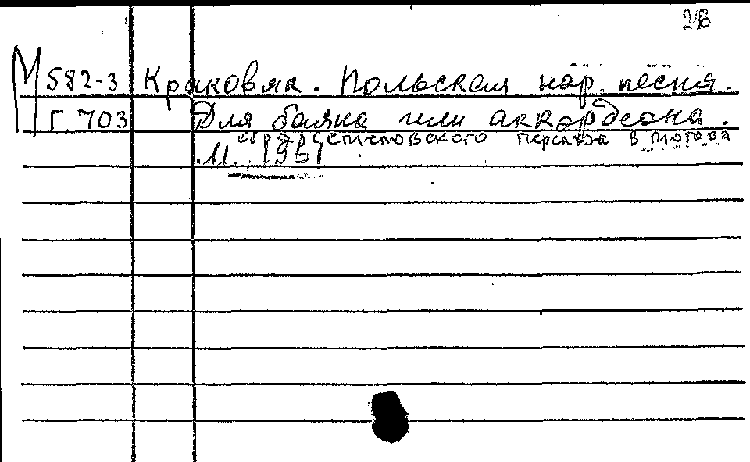 2В
М 582-3 Краковяк. Польская нар. песня.
Г. 703 Для баяна или аккордеона.
Перевод В
М. 1961